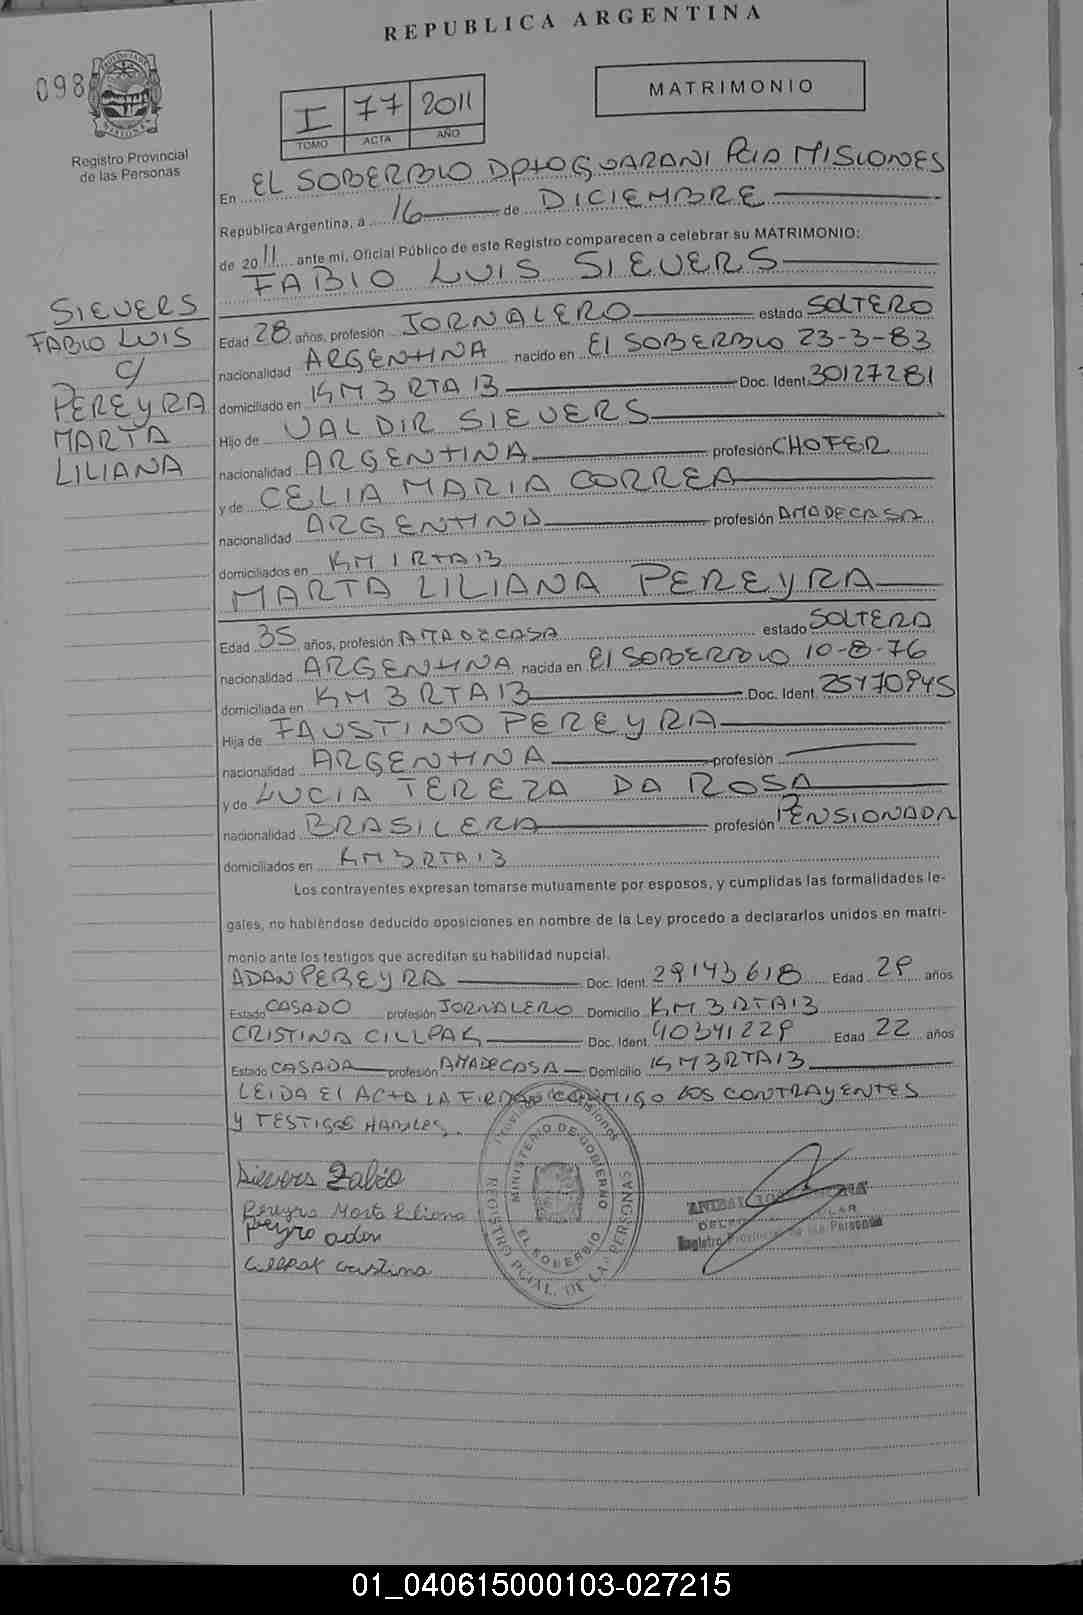 REPUBLICA ARGENTINA
098
PROVINCIA DE MISIONES
Registro Provincial
de las Personas
I 77 2011
TOMO ACTA AÑO
MATRIMONIO
En EL SOBERBIO DPTO GUARANI PCIA MISIONES
República Argentina, a 16 de DICIEMBRE
de 2011 ante mi, Oficial Público de este Registro comparecen a celebrar su MATRIMONIO:
FABIO LUIS SIEVERS
SIEVERS
FABIO LUIS
C/
PEREYRA
MARTA
LILIANA
Edad 28 años, profesión JORNALERO estado SOLTERO
nacionalidad ARGENTINA nacido en El SOBERBIO 23-3-83
domiciliado en KM 3 RTA 13 Doc. Ident. 30127281
Hijo de VALDIR SIEVERS
nacionalidad ARGENTINA profesión CHOFER
y de CELIA MARIA CORREA
nacionalidad ARGENTINA profesión AMADECASA
domiciliados en KM 1 RTA 13
MARTA LILIANA PEREYRA
Edad 35 años, profesión AMADECASA estado SOLTERA
nacionalidad ARGENTINA nacida en El SOBERBIO 10-8-76
domiciliada en KM 3 RTA 13 Doc. Ident.
Hija de FAUSTINO PEREYRA
nacionalidad ARGENTINA profesión
y de LUCIA TEREZA DA ROSA
nacionalidad BRASILERA profesión PENSIONADA
domiciliados en KM 3 RTA 13
Los contrayentes expresan tomarse mutuamente por esposos, y cumplidas las formalidades le-
gales, no habiéndose deducido oposiciones en nombre de la Ley procedo a declararlos unidos en matri-
monio ante los testigos que acreditan su habilidad nupcial.
ADAN PEREYRA Doc. Ident. 29143618 Edad 29 años
Estado CASADO profesión JORNALERO Domicilio KM 3 RTA 13
CRISTINA CILLPAK Doc. Ident. 40341229 Edad 22 años
Estado CASADA profesión AMADECASA Domicilio KM 3 RTA 13
LEIDA El ACTA LA FIRMAN CONMIGO LOS CONTRAYENTES
Y TESTIGOS HABILES.
Sievers Fabio
Pereyra Marta Liliana
Peyro adan
Cillpak Cristina
MINISTERIO DE GOBIERNO
EL SOBERBIO
REGISTRO PCIAL. DE LAS PERSONAS
Registro Provincial de las Personas
01_040615000103-027215